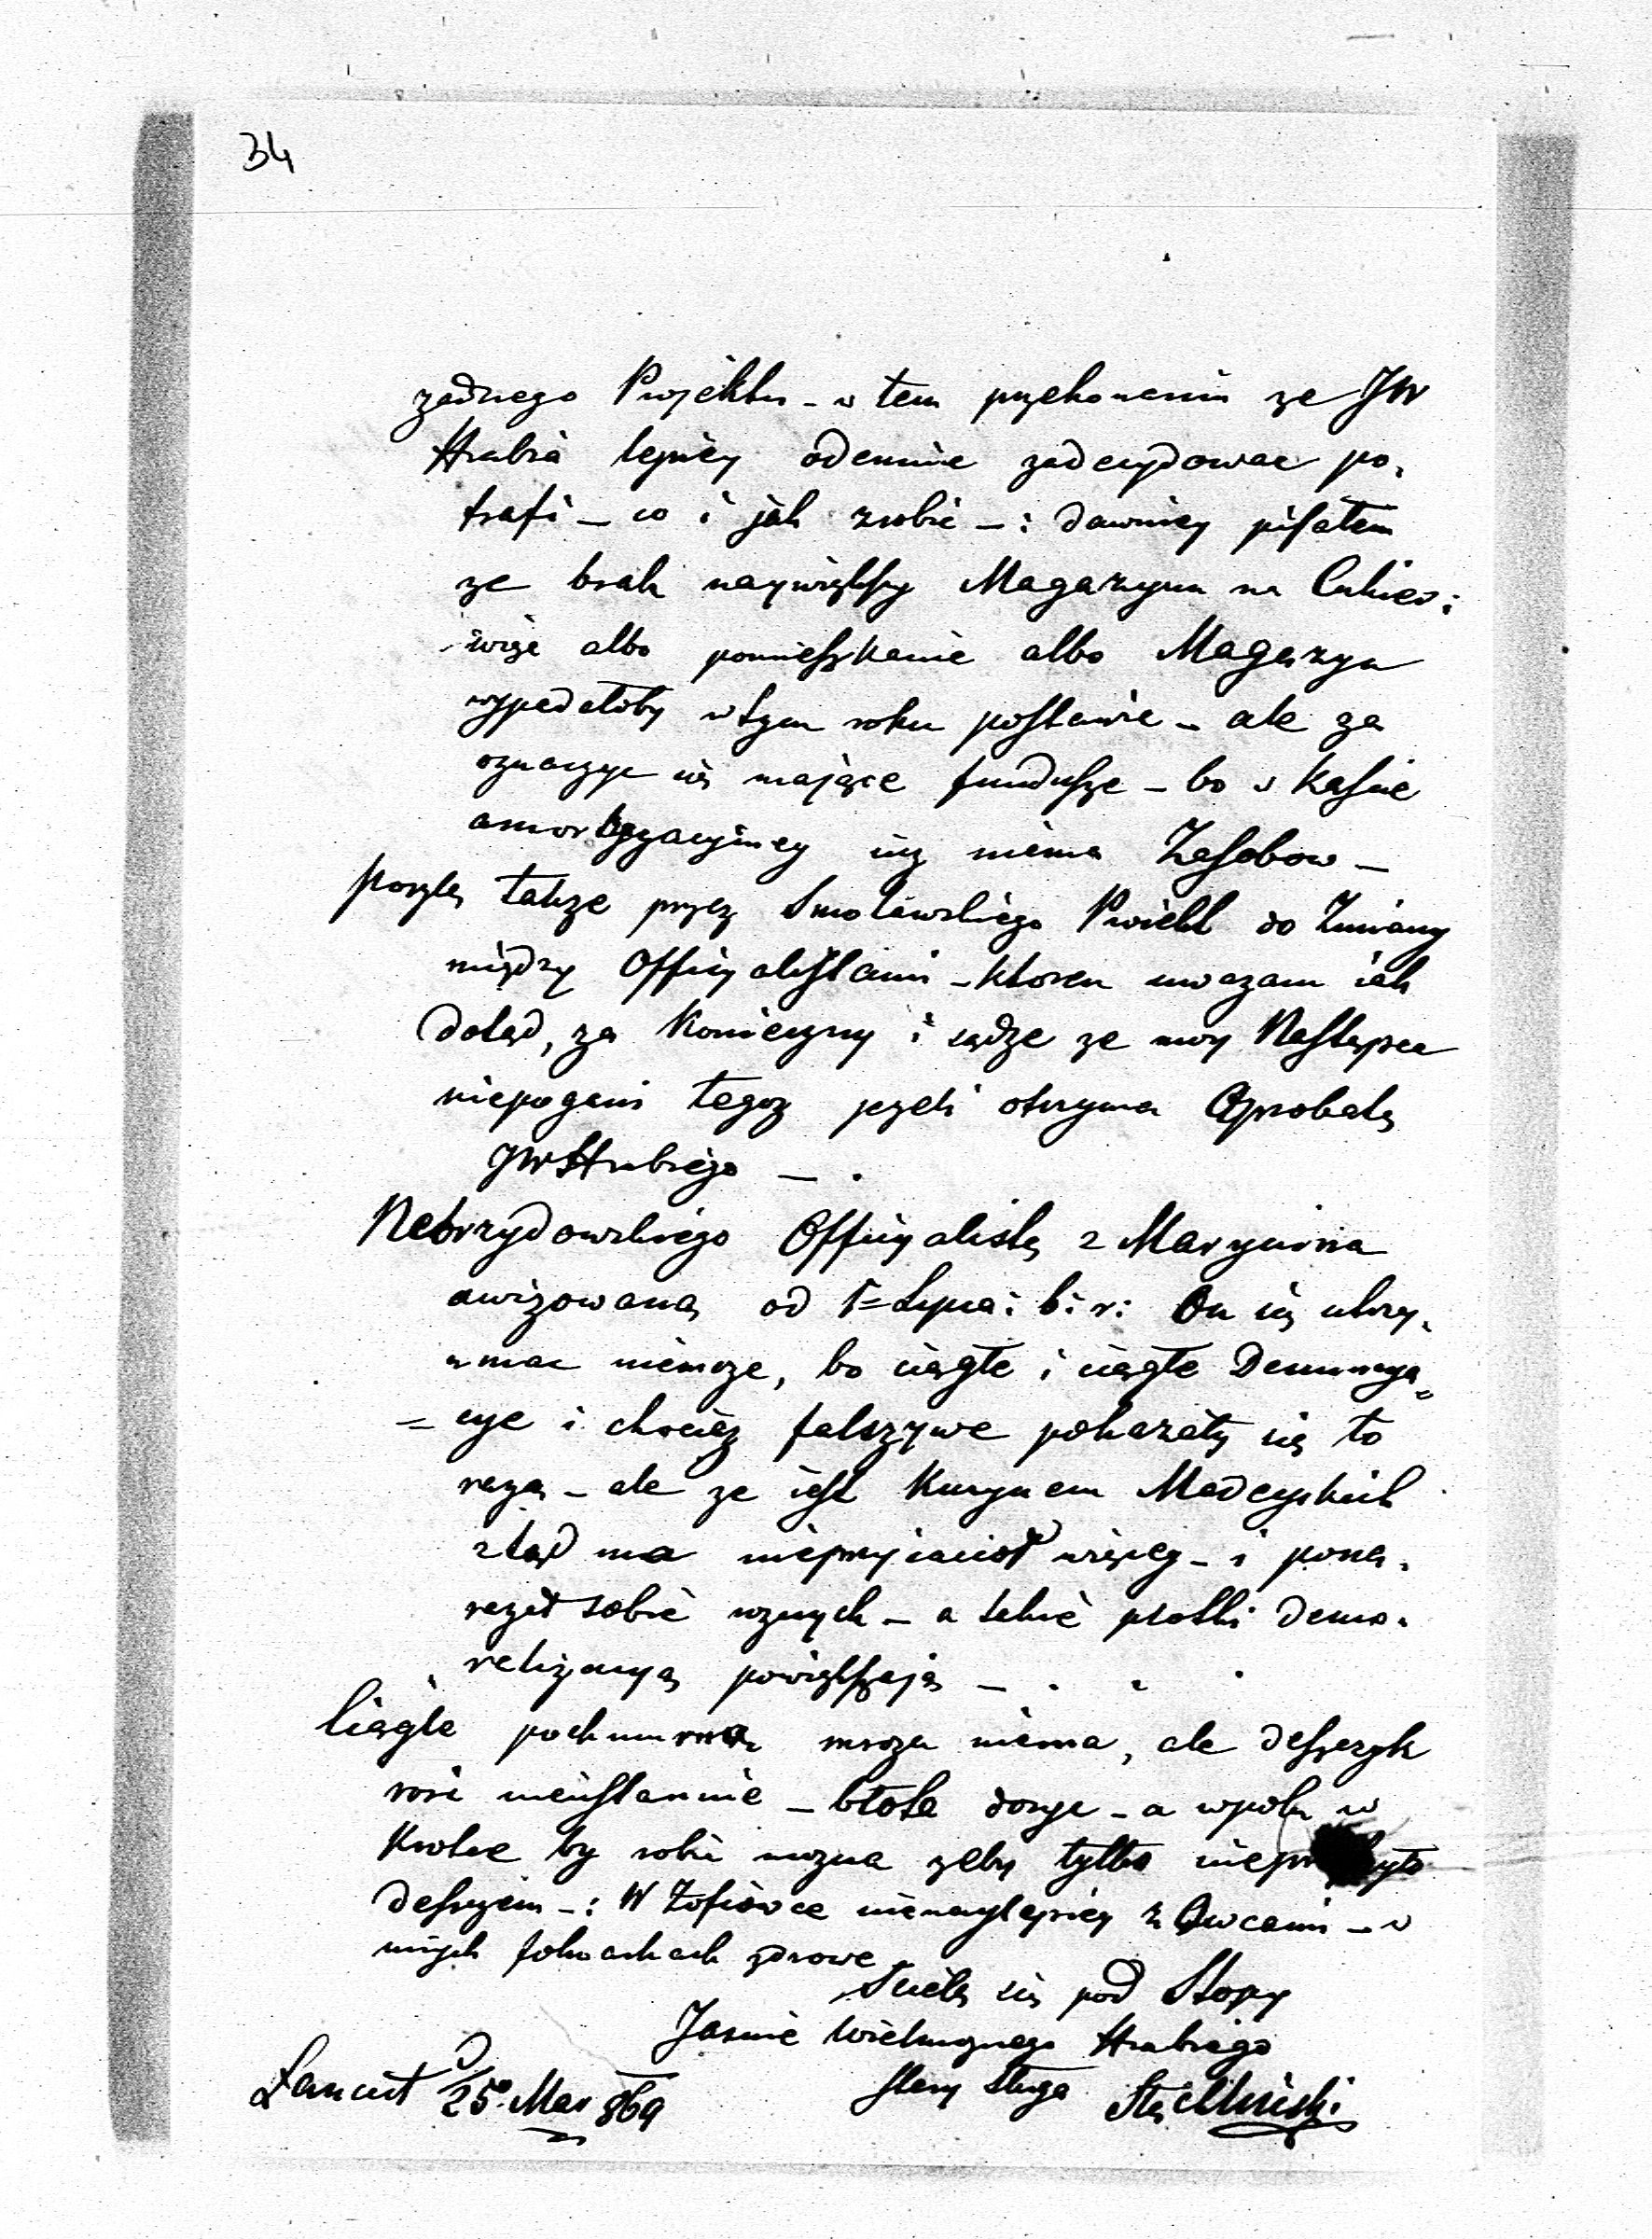 34
zadnego Projektu - w tem przekonaniu ze JW
Hrabia lepiey odemnie zadecydowac po,
trafi - co i jak zrobic - : dawniey pisałem
ze brak naywiększy Magazynu na Cukier:
więc albo pomieszkanie albo Magazyn
wypadałoby w tym roku postawic - ale za
oznaczyc się mające fundusze - bo w Kasie
amortyzacyiney iuz niema Zasobow -
Poszlę takze przez Smolawskiego Proiekt do Zmiany
między Officyalistami - ktoren uwazam iak
dotąd, za Konieczny i sądze ze moy Następca
niepogani tegoz jezeli otrzyma Aprobatę
JWHrabiego - .
Nebrzydowskiego Officyalistę z Marynina
awizowaną od 1= Lipca: b: r: On się utrzy,
mac niemoze, bo ciągłe i ciągłe Denuncya=
= cye i chociaz falszywe pokazały się to
razą - ale ze iest Kuzynem Madeyskich
ztąd ma nieprzyiacioł więcey - i pona,
raził sobie roznych - a takie plotki demo,
ralizacyą powiększają - . . .
Ciągle pochmurno mrozu niema, ale deszczyk
rosi nieustannie - błota dosyc - a w polu w
Krotce by robic mozna zeby tylko
deszczem - : W Zofiowce nienaylepiey z Owcami - w
innych folwarkach zdrowe
Scielę się pod Stopy
Jasnie Wielmoznego Hrabiego
stary Sługa
Lancut D 25º Mar 869